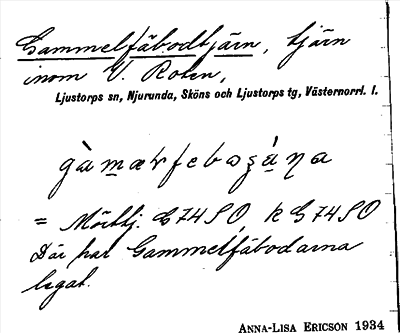 Gammelfäbodtjärn, tjärn
inom V. Roten,
Ljustorps sn, Njurunda, Sköns och Ljustorps tg, Västernorrl. l.
= Mörttj. G74SO, k G74SO
Där har Gammelfäbodarna
legat.
ANNA-LISA ERICSON 1934